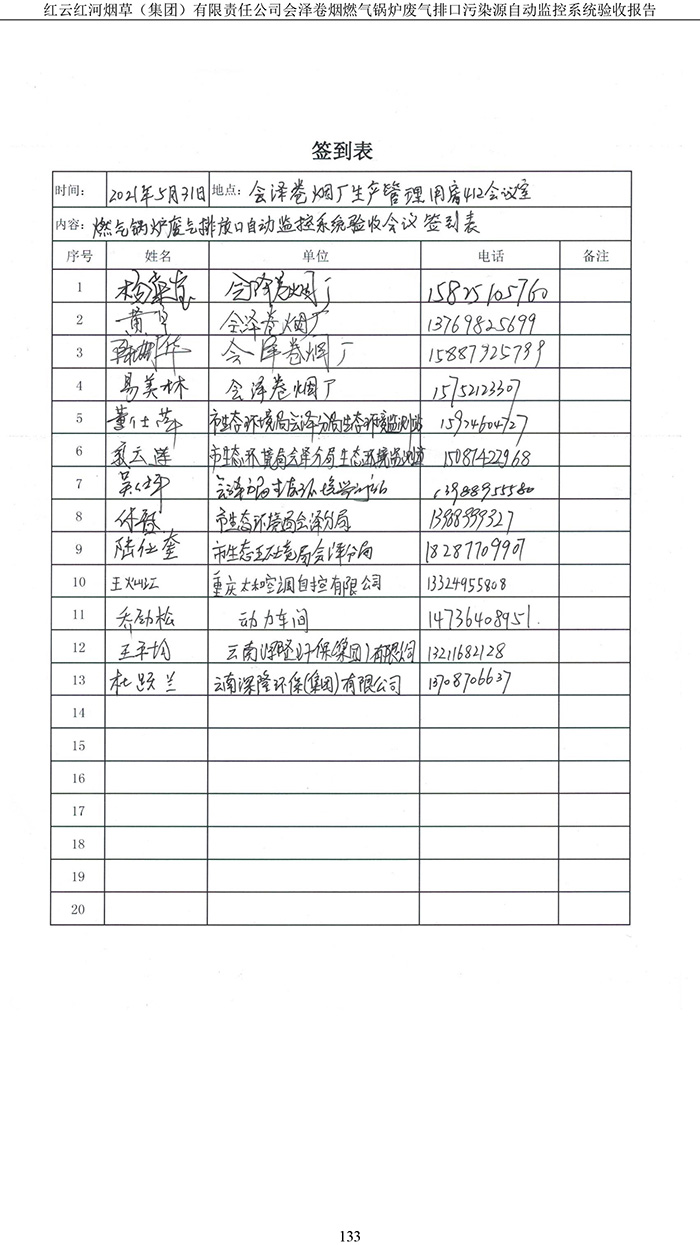 红云红河烟草（集团）有限责任公司会泽卷烟燃气锅炉废气排口污染源自动监控系统验收报告
签到表
时间： 2021年5月31日 地点： 会泽卷烟厂生产管理用房412会议室
内容： 燃气锅炉废气排放口自动监控系统验收会议签到表
序号 姓名 单位 电话 备注
1 会泽卷烟厂 15825105760
2 会泽卷烟厂 13769825699
3 会泽卷烟厂
4 易美林 会泽卷烟厂 15752123307
5 董仕萍 市生态环境局会泽分局生态环境监测站 15924604727
6 市生态环境局会泽分局生态环境监测站 15087422968
7 吴仕坪 13988955580
8 市生态环境局会泽分局
9 陆仕奎 市生态环境局会泽分局 18287709907
10 重庆太和空调自控有限公司 13324955808
11 乔劲松 动力车间 14736408951
12 云南深隆环保(集团)有限公司 13211682128
13 云南深隆环保(集团)有限公司 13708706637
14
15
16
17
18
19
20
133